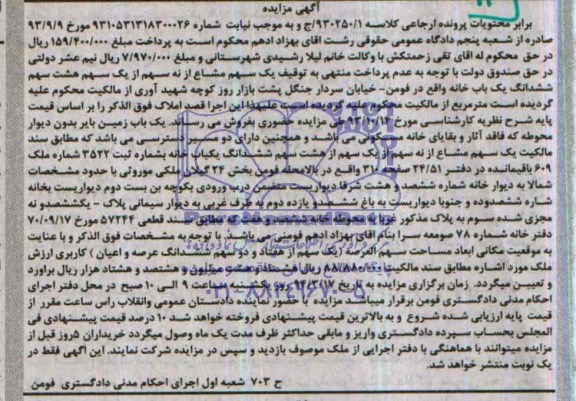 آگهی مزایده
برابر محتویات پرونده ارجاعی کلاسه ۹۳۰۲۵۰/۱/ج و به موجب نیابت شماره ۹۳۱۰۵۳۱۳۱۸۳۰۰۰۲۶ مورخ ۹۳/۹/۹
صادره از شعبه پنجم دادگاه عمومی حقوقی رشت اقای بهزاد ادهم محکوم است به پرداخت مبلغ ۱۵۹/۴۰۰/۰۰۰ ریال
در حق محکوم له اقای تقی زحمتکش با وکالت خانم لیلا رشیدی شهرستانی و مبلغ ۷/۹۷۰/۰۰۰ ریال نیم عشر دولتی
در حق صندوق دولت با توجه به عدم پرداخت منتهی به توقیف یک سهم مشاع از نه سهم از یک سهم هشت سهم
ششدانگ یک باب خانه واقع در فومن- خیابان سردار جنگل پشت بازار روز کوچه شهید آوری از مالکیت محکوم علیه
گردیده است مترمربع از مالکیت محکوم علیه گردیده است علیهذا این اجرا قصد املاک فوق الذکر را بر اساس قیمت
پایه شرح نظریه کارشناسی مورخ ۹۳/۱۰/۱۴ طی مزایده حضوری بفروش می رساند. یک باب زمین بایر بدون دیوار
محوطه که فاقد آثار و بقایای خانه مسکونی می باشد و همچنین دارای دو مسیر دسترسی می باشد که مطابق سند
مالکیت یک سهم مشاع از نه سهم از یک سهم از هشت سهم ششدانگ یکباب خانه بشماره ثبت ۳۵۲۲ شماره ملک
۶۰۹ باقیمانده در دفتر ۲۴/۵۱ صفحه ۳۱ واقع در بالامحله فومن بخش ۲۴ گیلان ملکی موروثی با حدود مشخصات
شمالا به دیوار خانه شماره ششصد و هشت شرقا دیواریست متضمن درب ورودی بکوچه بن بست دوم دیواریست بخانه
شماره ششصدوده و جنوبا دیواریست به باغ ششصد و یازده دوم به طرف غربی به دیوار سیمانی پلاک - یکششصدو نه
مجزی شده سوم به پلاک مذکور غربا به محوطه خانه ششصد و هفت که مطابق سند قطعی ۵۷۲۴۴ مورخ ۷۰/۰۹/۱۷
دفتر خانه شماره ۷۸ صومعه سرا بنام آقای بهزاد ادهم فومنی می باشد. با توجه به مشخصات فوق الذکر و با عنایت
به موقعیت مکانی ابعاد مساحت سهم العرصه (یک سهم از هفتاد و دو سهم ششدانگ عرصه و اعیان) کاربری ارزش
ملک مورد اشاره مطابق سند مالکیت مبلغ ریال هشتصد و هشتاد هزار ریال براورد
و تعیین میگردد. زمان برگزاری مزایده به تاریخ روز ساعت ۹ الی ۱۰ صبح در محل دفتر اجرای
احکام مدنی دادگستری فومن برقرار میباشد مزایده با حضور نماینده دادستان عمومی وانقلاب راس ساعت مقرر از
قیمت پایه ارزیابی شده شروع و به بالاترین قیمت پیشنهادی فروخته خواهد شد ۱۰ درصد قیمت پیشنهادی فی
المجلس بحساب سپرده دادگستری واریز و مابقی حداکثر ظرف مدت یک ماه وصول میگردد خریداران ۵روز قبل از
مزایده میتوانند با هماهنگی با دفتر اجرایی از ملک موصوف بازدید و سپس در مزایده شرکت نمایند. این آگهی فقط در
یک نوبت منتشر خواهد شد.
ح ۷۰۳ شعبه اول اجرای احکام مدنی دادگستری فومن